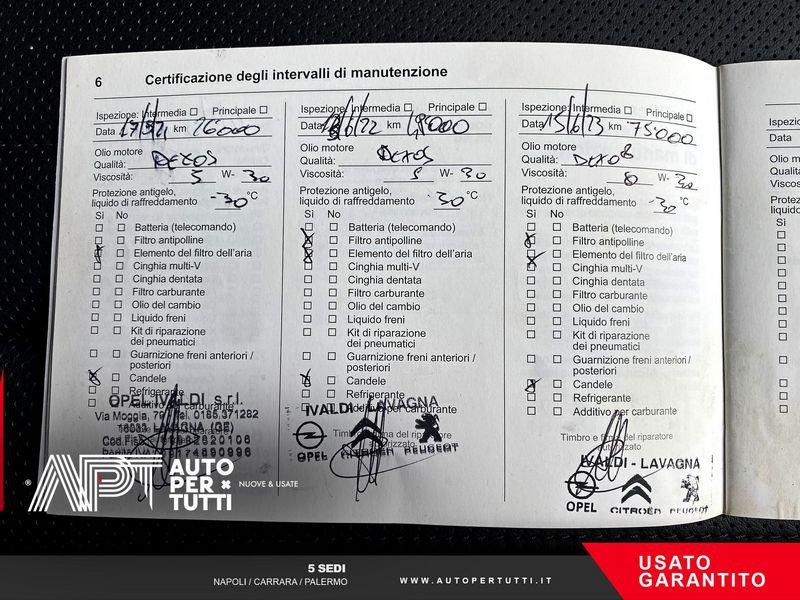 6 Certificazione degli intervalli di manutenzione
Ispezione: Intermedia ☐ Principale ☐
Data km 26000
Olio motore
Qualità: DEXOS
Viscosità: 5 W- 30
Protezione antigelo,
liquido di raffreddamento -30 °C
Sì No
Batteria (telecomando)
Filtro antipolline
Elemento del filtro dell'aria
Cinghia multi-V
Cinghia dentata
Filtro carburante
Olio del cambio
Liquido freni
Kit di riparazione
dei pneumatici
Guarnizione freni anteriori /
posteriori
Candele
Refrigerante
Additivo per carburante
OPEL IVALDI s.r.l.
Via Moggia, Tel. 0185.371282
LAVAGNA (GE)
Ispezione: Intermedia ☐ Principale ☐
Data /6/22 km
Olio motore
Qualità: DEXOS
Viscosità: 5 W- 30
Protezione antigelo,
liquido di raffreddamento -30 °C
Sì No
Batteria (telecomando)
Filtro antipolline
Elemento del filtro dell'aria
Cinghia multi-V
Cinghia dentata
Filtro carburante
Olio del cambio
Liquido freni
Kit di riparazione
dei pneumatici
Guarnizione freni anteriori /
posteriori
Candele
Refrigerante
Additivo per carburante
IVALDI - LAVAGNA
Timbro e firma del riparatore
OPEL CITROËN PEUGEOT
Ispezione: Intermedia ☐ Principale ☐
Data 15/6/23 km 75000
Olio motore
Qualità: DEXOS
Viscosità: 0 W- 30
Protezione antigelo,
liquido di raffreddamento -30 °C
Sì No
Batteria (telecomando)
Filtro antipolline
Elemento del filtro dell'aria
Cinghia multi-V
Cinghia dentata
Filtro carburante
Olio del cambio
Liquido freni
Kit di riparazione
dei pneumatici
Guarnizione freni anteriori /
posteriori
Candele
Refrigerante
Additivo per carburante
Timbro e firma del riparatore
autorizzato
IVALDI - LAVAGNA
OPEL CITROËN PEUGEOT
Data
Sì
APT AUTO PER TUTTI
NUOVE & USATE
5 SEDI
NAPOLI / CARRARA / PALERMO
WWW.AUTOPERTUTTI.IT
USATO
GARANTITO